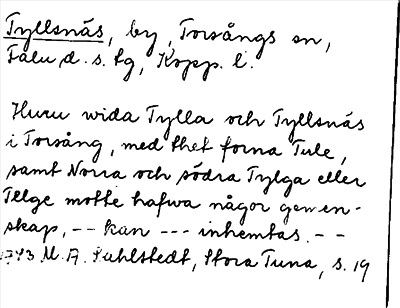 Tyllsnäs, by, Torsångs sn,
Falu d. s. lg, Kopp. l.
Huru wida Tylla och Tyllsnäs
i Torsång, med thet forna Tule,
samt Norra och södra Tylga eller
Telge motte hafwa någor gemen-
skap, -- kan --- inhemtas. --
1743 M. A. Sahlstedt, Stora Tuna, s. 19